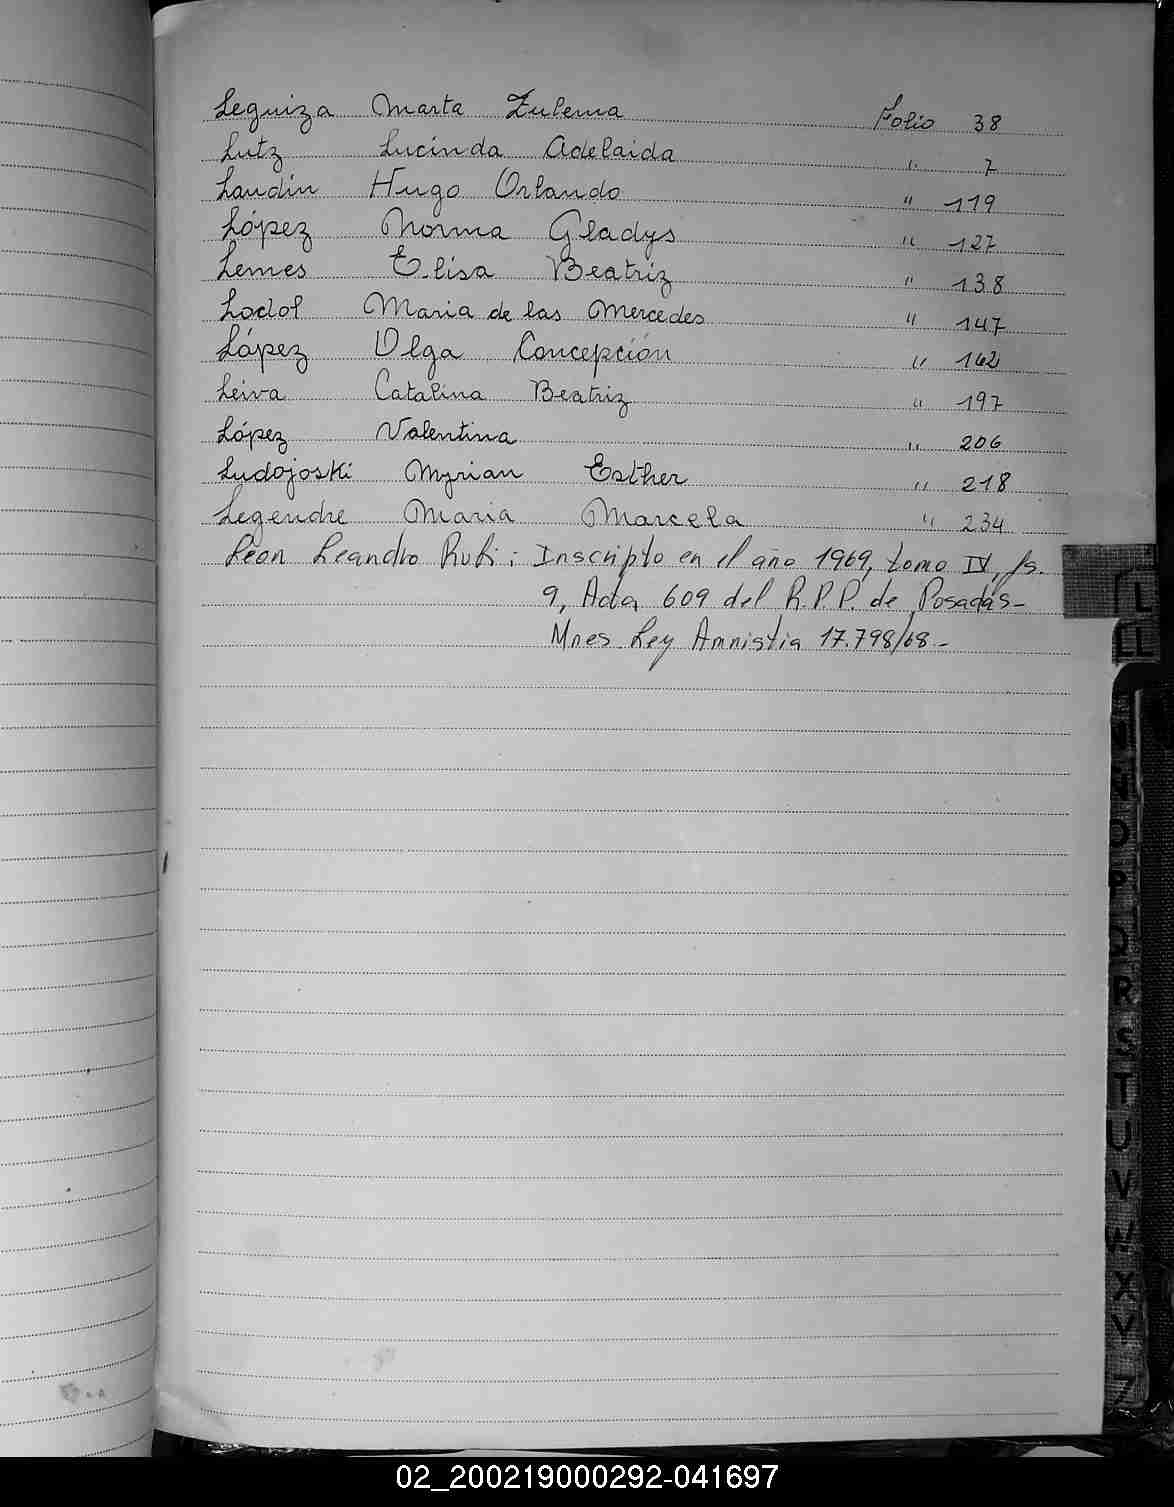 Leguiza Marta Zulema Folio 38
Lutz Lucinda Adelaida " 7
Landin Hugo Orlando " 119
López Norma Gladys " 127
Lemes Elisa Beatriz " 138
Lodol Maria de las Mercedes " 147
López Olga Concepción " 162
Leiva Catalina Beatriz " 197
López Valentina " 206
Ludojoski Myrian Esther " 218
Legendre Maria Marcela " 234
Leon Leandro Rubi: Inscripto en el año 1969, tomo IV, fs.
9, Acta 609 del R.P.P. de Posadas-
Mnes. Ley Amnistia 17.798/68.-
L
LL
O
P
Q
R
S
T
U
V
W
X
Y
Z
02_200219000292-041697